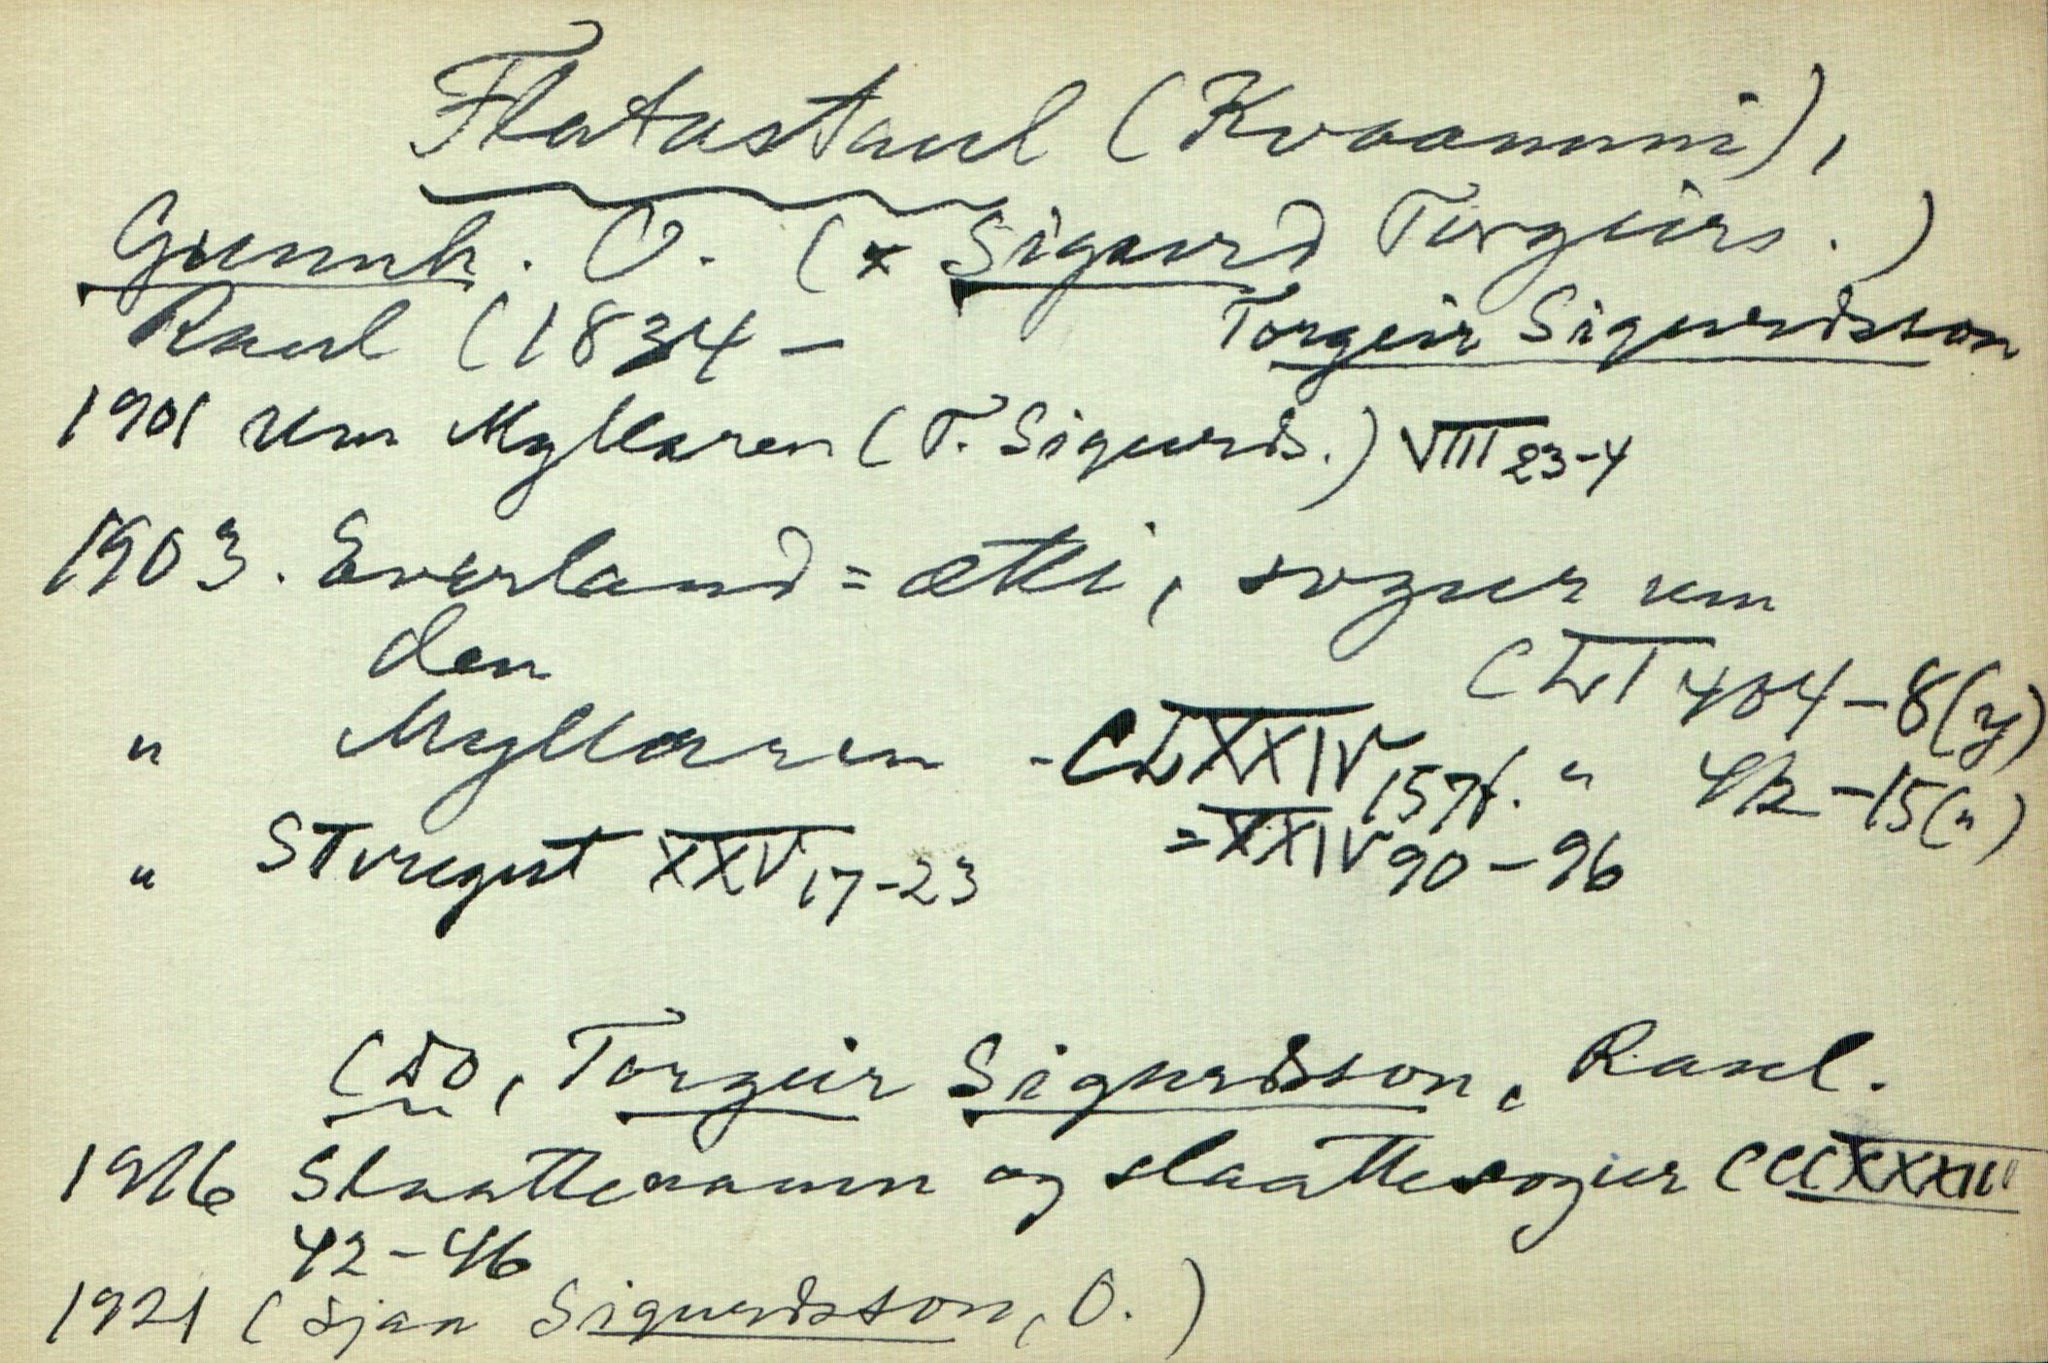 Flatastaul (Kvaammi),
Gunnh. O. (x Sigurd Torgeirs.)
Raul (1834 – Torgeir Sigurdsson
1901 Um Myllaren (T. Sigurds.) VIII 23-4
1903. Everland = ætti, sogur um
den CLI 404-8 (y)
" Myllaren - CLXXIV 157f. " 412-15 (")
" Storegut XXV 17-23 = XXIV 90-96
Torgeir Sigurdsson, Raul.
1916 Slaattenamn og slaattesogur CCCXXXIII
42-46
1921 (Sjaa Sigurdsson, O.)